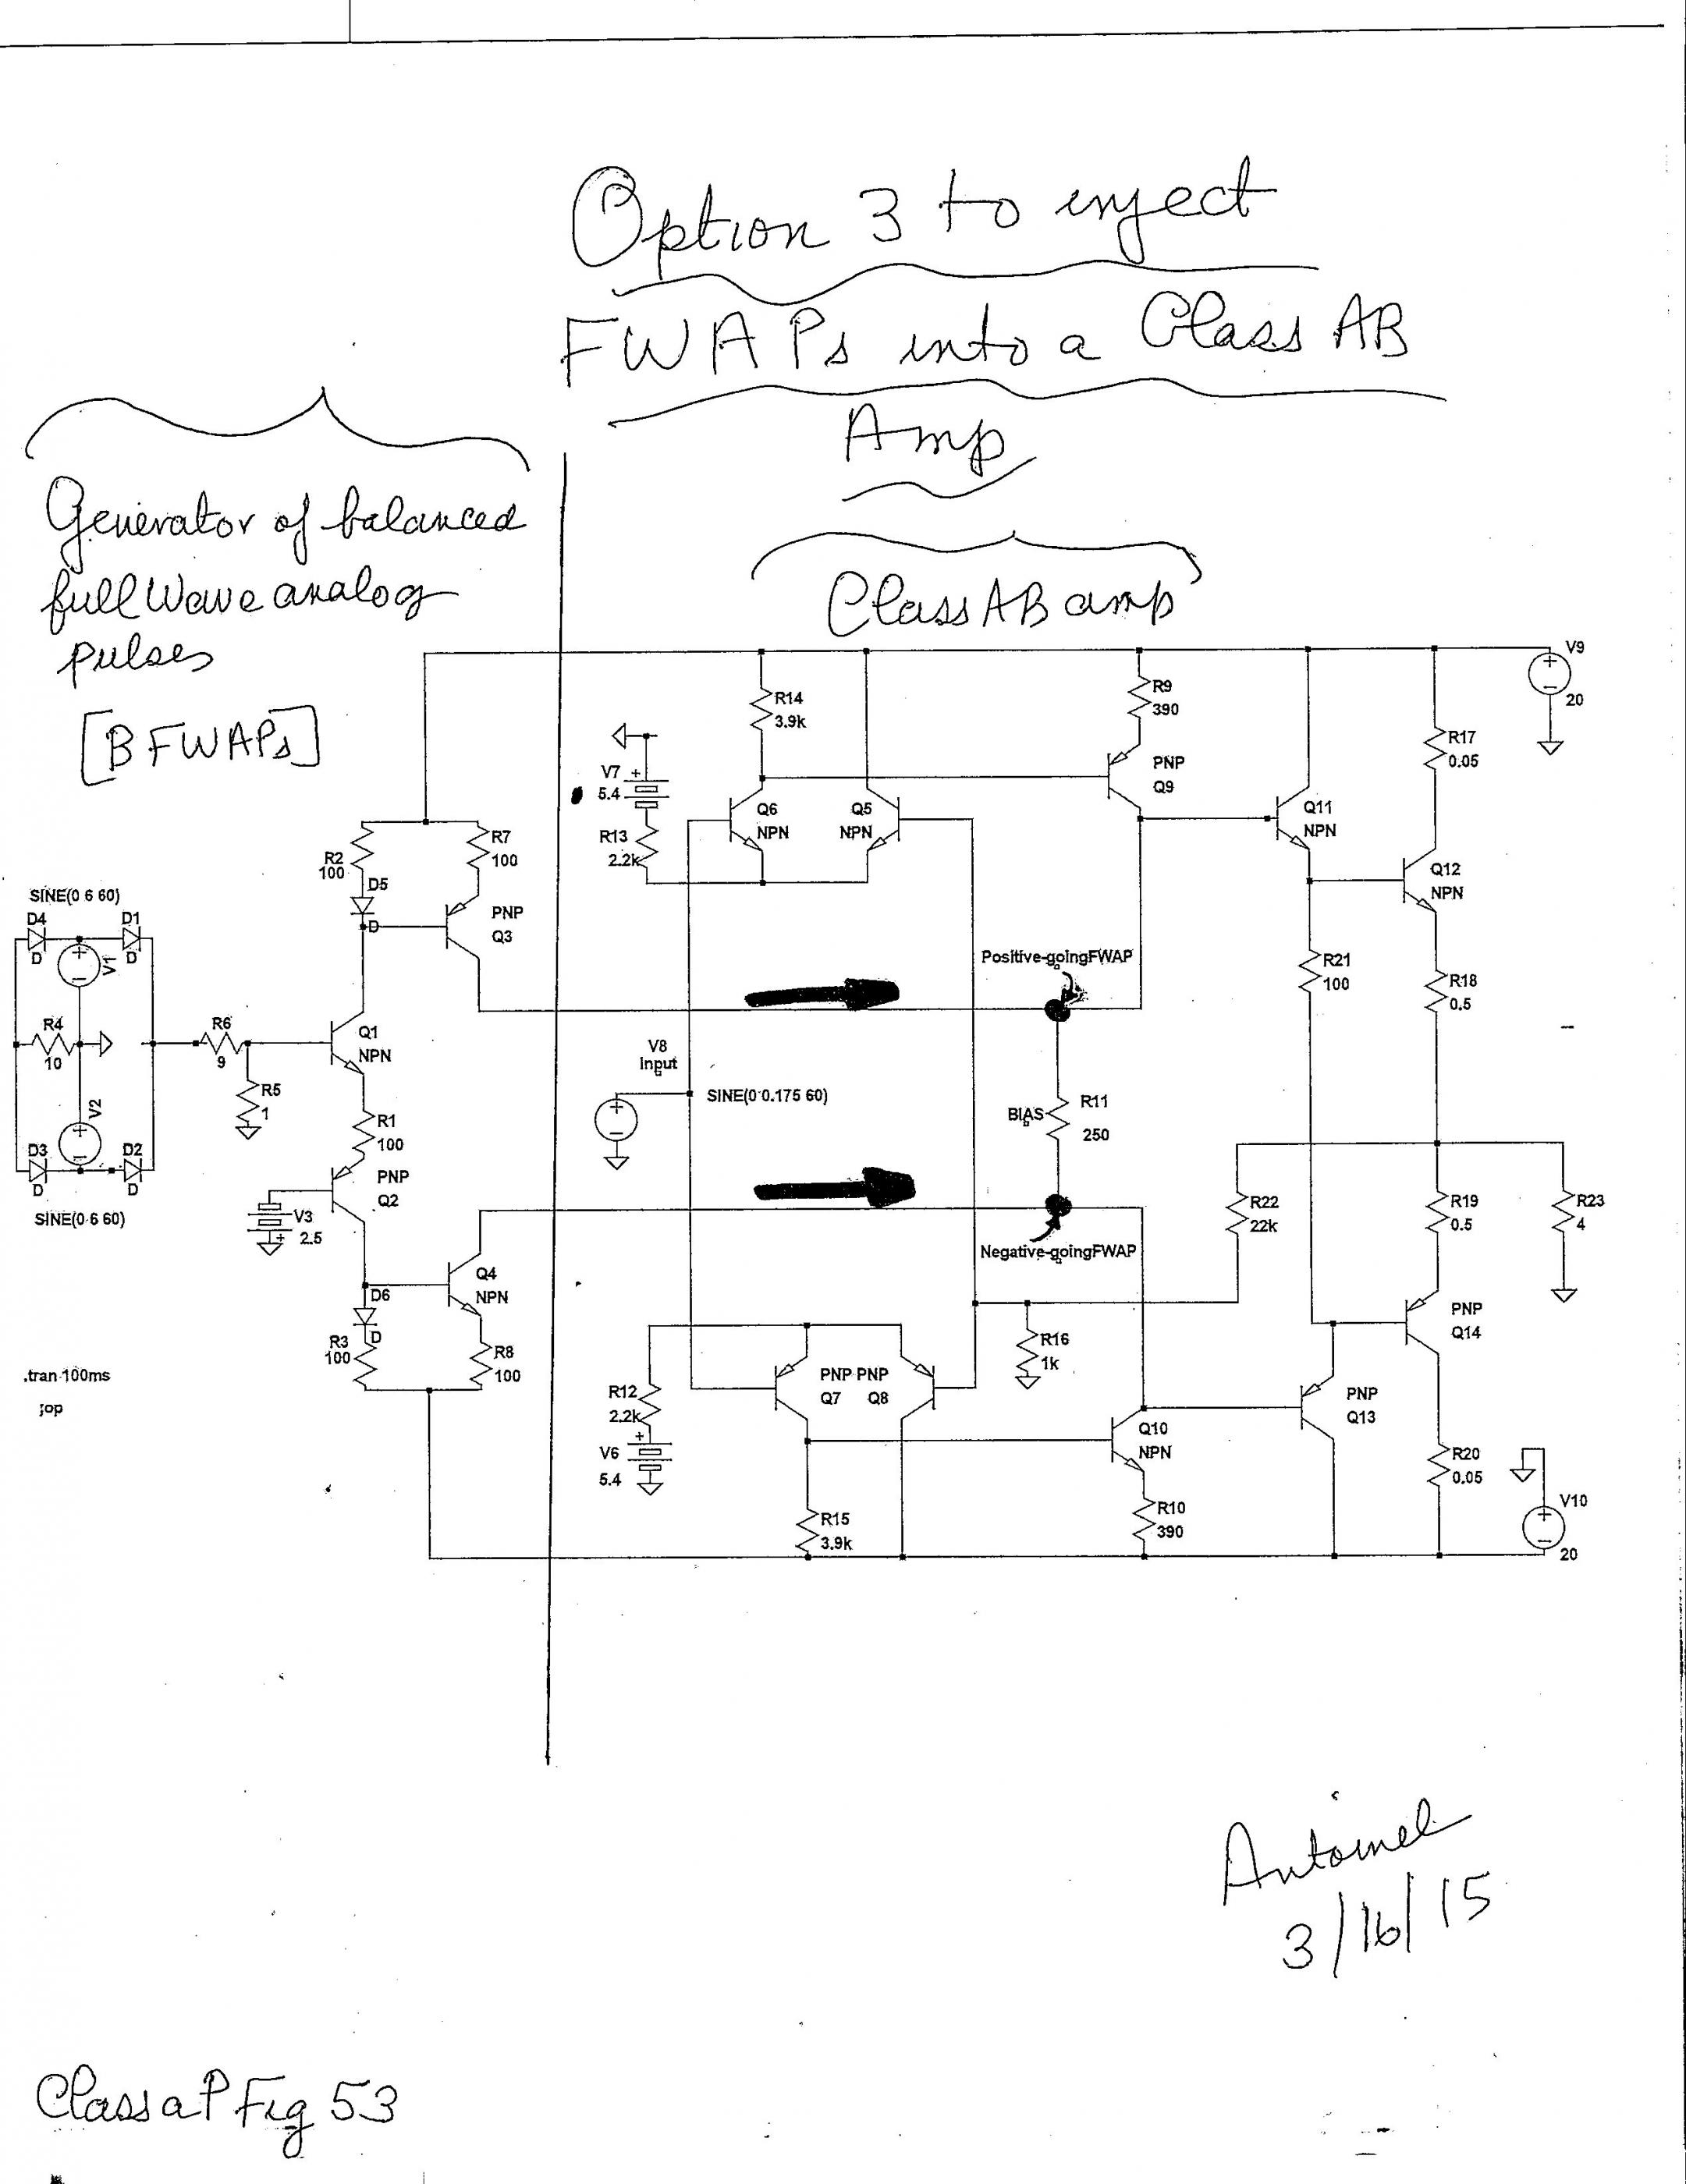 Option 3 to inject
FWAPs into a Class AB
Amp
Generator of balanced
full Wave analog
pulses
[BFWAPs]
Class AB amp
V9
20
R14
3.9k
R9
390
R17
0.05
V7
5.4
R13
2.2k
Q6
NPN
Q5
NPN
PNP
Q9
Q11
NPN
Q12
NPN
R2
100
D5
D
R7
100
PNP
Q3
SINE(0 6 60)
D4
D
D1
D
V1
R4
10
R6
9
R5
1
Q1
NPN
R1
100
V2
D3
D
D2
D
SINE(0 6 60)
PNP
Q2
V3
2.5
Q4
NPN
D6
D
R3
100
R8
100
Positive-goingFWAP
R21
100
R18
0.5
V8
Input
SINE(0 0.175 60)
BIAS
R11
250
Negative-goingFWAP
R22
22k
R19
0.5
R23
4
R16
1k
PNP
Q14
.tran 100ms
R12
2.2k
V6
5.4
PNP PNP
Q7 Q8
PNP
Q13
Q10
NPN
R15
3.9k
R10
390
R20
0.05
V10
20
Antoinel
3/16/15
Class aP Fig 53